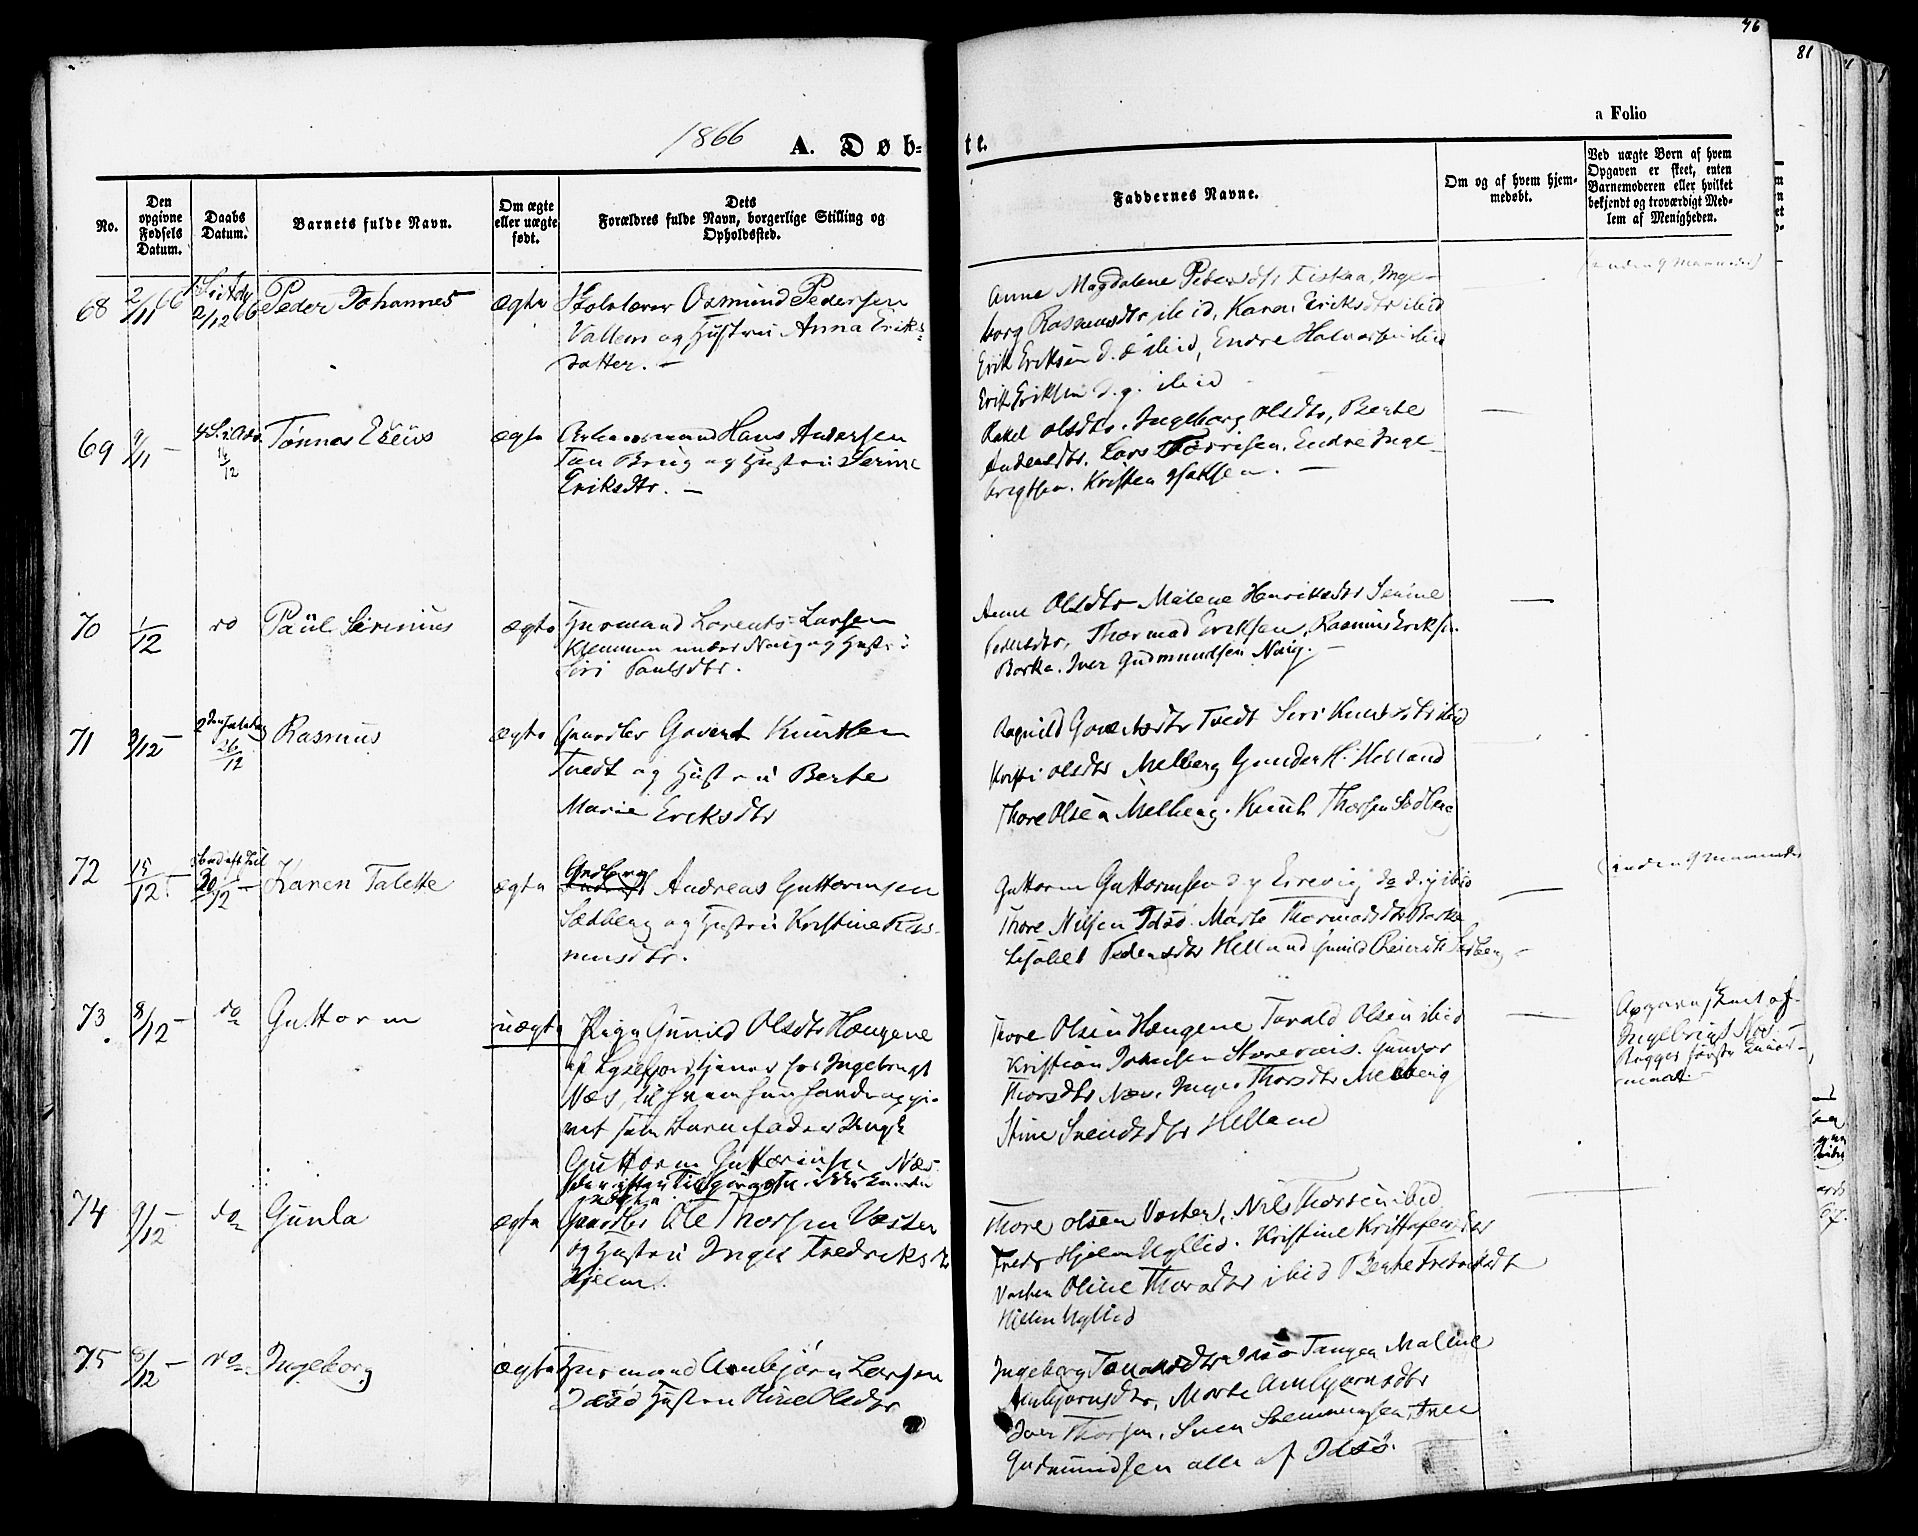 76
81
a Folio
1866 A. Døb-
te.
No.
Den opgivne Fødsels Datum.
Daabs Datum.
Barnets fulde Navn.
Om ægte eller uægte født.
Dets Forældres fulde Navn, borgerlige Stilling og Opholdssted.
Faddernes Navne.
Om og af hvem hjem-
medøbt.
Ved uægte Børn af hvem
Opgaven er skeet, enten
Barnemoderen eller hvilket
bekjendt og troværdigt Med-
lem af Menigheden.
68 2/11 66 1 S i Adv 2/12 66 Peder Johannes ægte Skolelærer Osmund Pedersen
Vallem og Hustru Anna Eriks-
datter. —
Anne Magdalene Pedersdtr Fiskaa, Inge-
borg Rasmusdtr ibid, Karen Eriksdtr ibid
Erik Eriksen d. æ ibid, Endre Halvorsen ibid
Erik Eriksen d. y. ibid
(inden 9 Maaneder)
69 9/11 — 4 S. i Adv. 16/12 Tønnes Eseus ægte Arbeidsmand Hans Andersen
Tau Brug og Hustru Serine
Eriksdtr. —
Rakel Olsdtr. Ingeborg Olsdtr, Berte
Andersdtr. Lars Tørrisen. Endre Inge-
brigtsen. Kristen Isaksen. —
70 1/12 do Paul Serinius ægte Huusmand Lorents Larsen
Klemmen under Nøig og Hustru
Siri Paulsdtr.
Anne Olsdtr Malene Henriksdtr Serine
Pedersdtr, Thormod Eriksen, Rasmus Eriksen
Barka. Iver Gudmundsen Nøig. —
71 3/12 — 2den Juledag 26/12 Rasmus ægte Gaardbr Govert Knutsen
Tvedt og Hustru Berte
Marie Eriksdtr
Ragnild Govertsdtr Tvedt Siri Knutsdtr ibid
Kristi Olsdtr Melberg Gunder H. Helland
Thore Olsen Melberg. Knut Thorsen Sedberg
72 15/12 — Sønd eft Jul 30/12 — Karen Talette ægte Grdbrug Andreas Guttormsen
Sædberg og Hustru Kristine Ras-
musdtr.
Guttorm Guttormsen d y Eirevig do d. y ibid
Thore Nilsen Idsø. Marte Thormodsdtr Barka
Lisabet Pedersdtr Helland Gunild Sedberg
(inden 9 Maaneder
73. 8/12 — do Guttorm uægte Pige Gunild Olsdtr Hængene
af Lysefjord tjener hos Ingebrigt
Næs, til hvem hun havde opgi-
vet som Barnefader Ungk
Guttorm Guttormsen Næs
Thore Olsen Hængene Tarald Olsen ibid
Kristian Johnsen Gunvor
Thorsdtr Næs. Inger Thorsdtr Melberg
Stine Svendsdtr Helland
Opgaven skeet af
Ingebrigt Næs.
Begges første Leier-
maal. —
74 9/12 — do Gunla ægte Gaardbr Ole Thorsen Vaster
og Hustru Inger Fredriksdtr
Hjelm.
Thore Olsen Vaster, Nils Thorsen ibid
Fredr Hjelm Hyllid. Kristine Kristofersdtr
Vaster Oline Thorsdtr ibid Berte Fredriksdt
Hjelm Hyllid
75 8/12 — do Ingeborg ægte Huusmand Arnbjørn Larsen
Idsø Hustru Oline Olsdtr
Ingeborg Idsø Tangen Malene
Arnbjørnsdtr, Marte Arnbjørnsdtr
Iver Thorsen, Sven Svenningsen, Iver
Gudmundsen alle af Idsø.